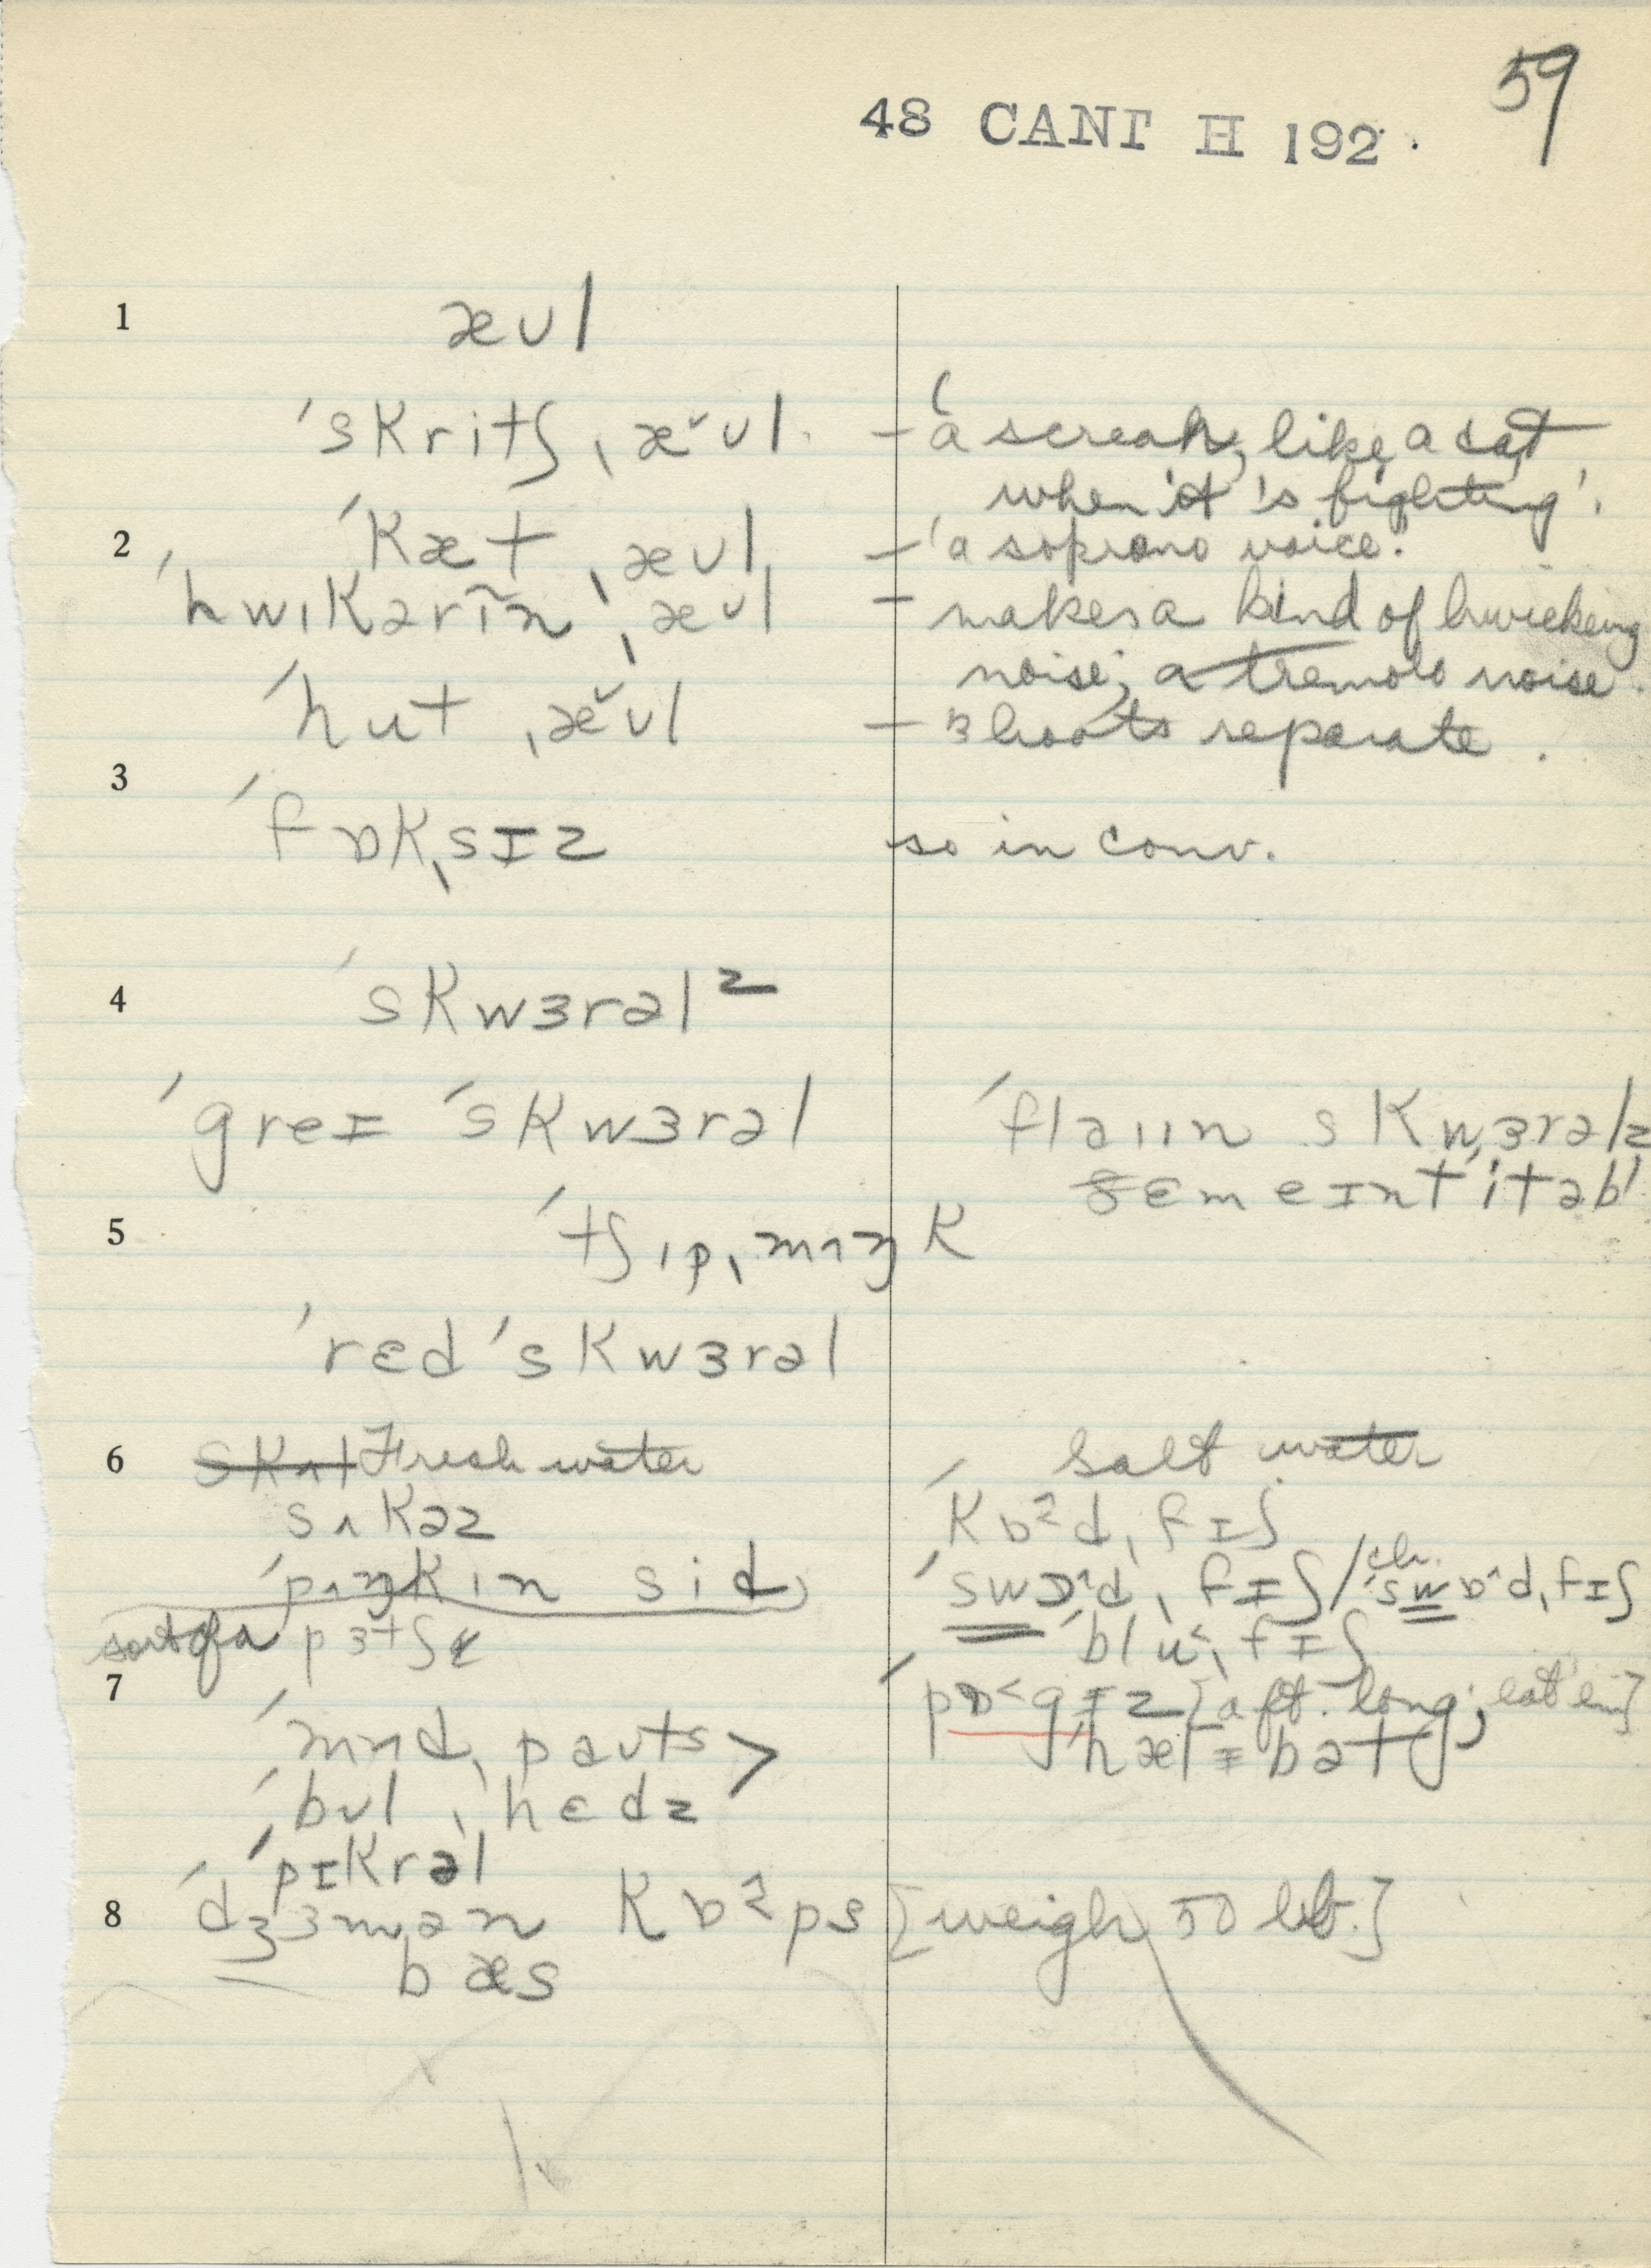 59
48 CANT H 192.
1 æʊl
ˈskritʃˌæ˅ʊl. – ‘a screak, like a cat
when it 's fighting'.
2 ˈkætˌæʊl – ‘a soprano voice.'
ˈhwɪkərĩnˌæʊl – makes a kind of hwickering
noise; a tremolo noise.
ˈhutˌæ˅ʊl – 3 hoots separate.
3
ˈfɒkˌsɪz so in conv.
4 ˈskwɜrəlᶻ
ˈgreɪ ˈskwɜrəl ˈflaɪɪn skwɜrəlz
ðɛm eɪnt ˈitəbl
5 ˈtʃɪpˌmʌŋk
ˈrɛd ˈskwɜrəl
6 Fresh water Salt water
sʌkəz ˈkɒ^dˌfɪʃ
ˈpʌŋkɪn sid ˈswɔ^dˌfɪʃ / ch. ˈswɒ^dˌfɪʃ
sort of a pɜtʃ ˈblu˂ˌfɪʃ
7 ˈpɒ˂gɪz [a ft. long; eat 'em]
ˈmʌdˌpaʊts > ˈhælɪbət
ˈbʊlˌhɛdz
ˈpɪkrəl
8 ˈdʒɜmən kɒ^ps [weigh 50 lb.]
bæs